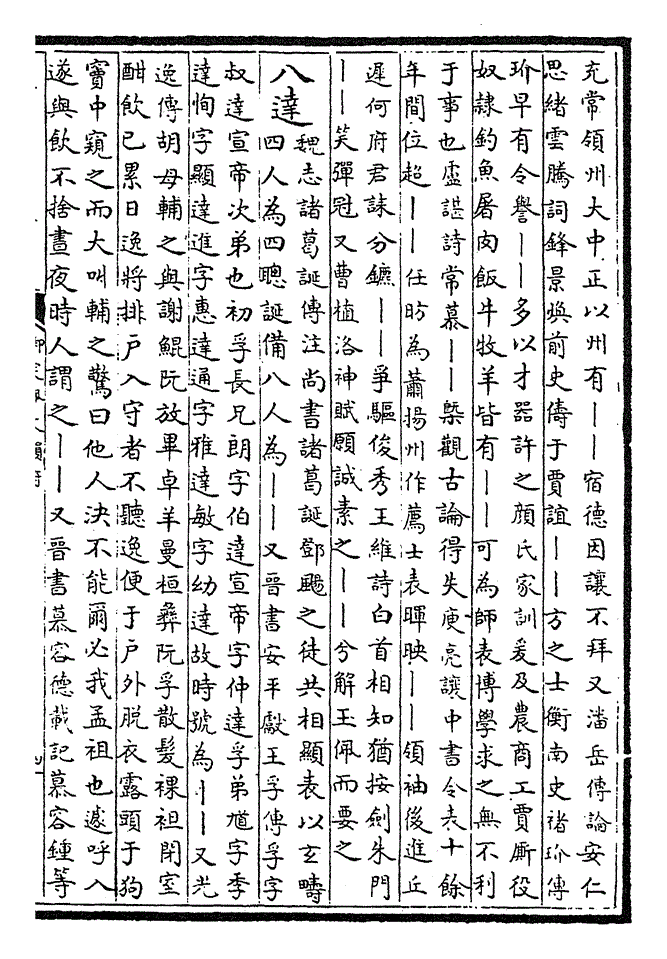 充常領州大中正以州有丨丨宿德因讓不拜又潘岳傳論安仁
思緒雲騰詞鋒景煥前史儔于賈誼丨丨方之士衡南史褚玠傳
玠早有令譽丨丨多以才器許之顔氏家訓爰及農商工賈厮役
奴隷釣魚屠肉飯牛牧羊皆有丨丨可為師表博學求之無不利
于事也盧諶詩常慕丨丨槩觀古論得失庾亮讓中書令表十餘
年間位超丨丨任昉為蕭揚州作薦士表暉映丨丨領袖後進丘
遲何府君誄分鑣丨丨爭驅俊秀王維詩白首相知猶按劍朱門
丨丨笑彈冠又曹植洛神賦願誠素之丨丨兮解玉佩而要之
八達
魏志諸葛誕傳注尚書諸葛誕鄧颺之徒共相顯表以玄疇
四人為四聰誕備八人為丨丨又晉書安平獻王孚傳孚字
叔達宣帝次弟也初孚長兄朗字伯達宣帝字仲達孚弟馗字季
達恂字顯達進字惠達通字雅達敏字幼達故時號為丨丨又光
逸傳胡母輔之與謝鯤阮放畢卓羊曼桓彝阮孚散髮裸袒閉室
酣飲已累日逸將排戶入守者不聽逸便于戶外脫衣露頭于狗
竇中窺之而大叫輔之驚曰他人決不能爾必我孟祖也遽呼入
遂與飲不捨晝夜時人謂之丨丨又晉書慕容德載記慕容鍾等